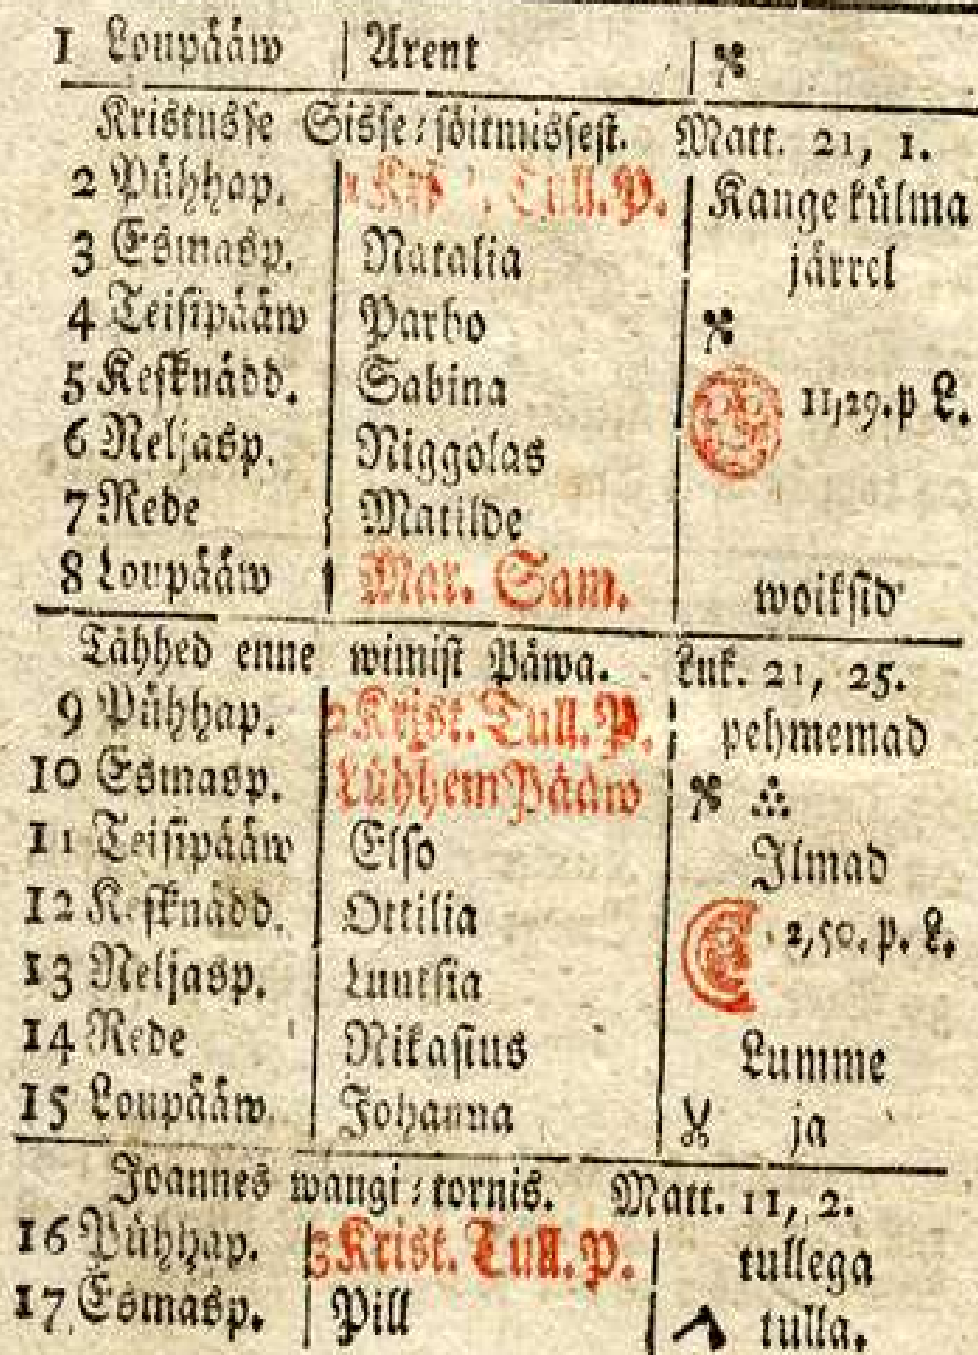 1 Loupääw Arent
Kristusse Sisse-söitmissest. Matt. 21, 1.
2 Pühhap. Tull. P. Kange külma
3 Esmasp. Natalia järrel
4 Teisipääw Parbo
5 Kesknädd. Sabina 11,29. p L.
6 Neljasp. Niggolas
7 Rede Matilde
8 Loupääw Mar. Sam. woiksid
Tähhed enne wimist Päwa. Luk. 21, 25.
9 Pühhap. 2 Krist. Tull. P. pehmemad
10 Esmasp. Lühhem Pääw
11 Teisipääw Elso Ilmad
12 Kesknädd. Ottilia 2,50. p. L.
13 Neljasp. Luutsia
14 Rede Nikasius Lumme
15 Loupääw Johanna ja
Joannes wangi-tornis. Matt. 11, 2.
16 Pühhap. 3 Krist. Tull. P. tullega
17 Esmasp. Pill tulla.